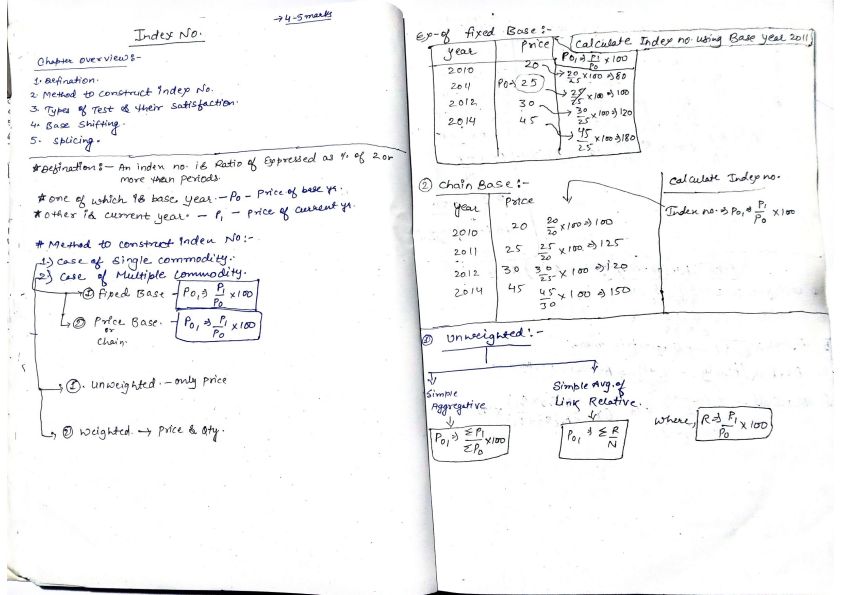 → 4-5 marks
Index No.
Chapter overviews:-
1. Defination.
2. Method to construct Index No.
3. Types of Test & their satisfaction.
4. Base Shifting.
5. Splicing.
* Defination:- An index no. is Ratio of Expressed as % of 2 or
more than periods.
* one of which is base year. - P0 - Price of base yr.
* other is current year. - P1 - Price of current yr.
# Method to construct Index No:-
1) case of Single commodity.
2) case of Multiple Commodity.
① Fixed Base - P01 ⇒ P1/P0 × 100
② Price Base - P01 ⇒ P1/P0 × 100
or
Chain.
①. Unweighted. - only price
② Weighted → price & Qty.
Ex-of fixed Base:-
Calculate Index no. using Base year 2011
Year Price P01 ⇒ P1/P0 × 100
2010 20 → 20/25 × 100 ⇒ 80
2011 P0 → 25 → 25/25 × 100 ⇒ 100
2012 30 → 30/25 × 100 ⇒ 120
2014 45 → 45/25 × 100 ⇒ 180
② Chain Base:-
Calculate Index no.
Year Price
Index no. ⇒ P01 ⇒ P1/P0 × 100
2010 20 20/20 × 100 ⇒ 100
2011 25 25/20 × 100 ⇒ 125
2012 30 30/25 × 100 ⇒ 120
2014 45 45/30 × 100 ⇒ 150
① Unweighted:-
Simple
Aggregative
P01 ⇒ ΣP1/ΣP0 × 100
Simple Avg. of
Link Relative.
P01 ⇒ Σ R/N
where, R ⇒ P1/P0 × 100